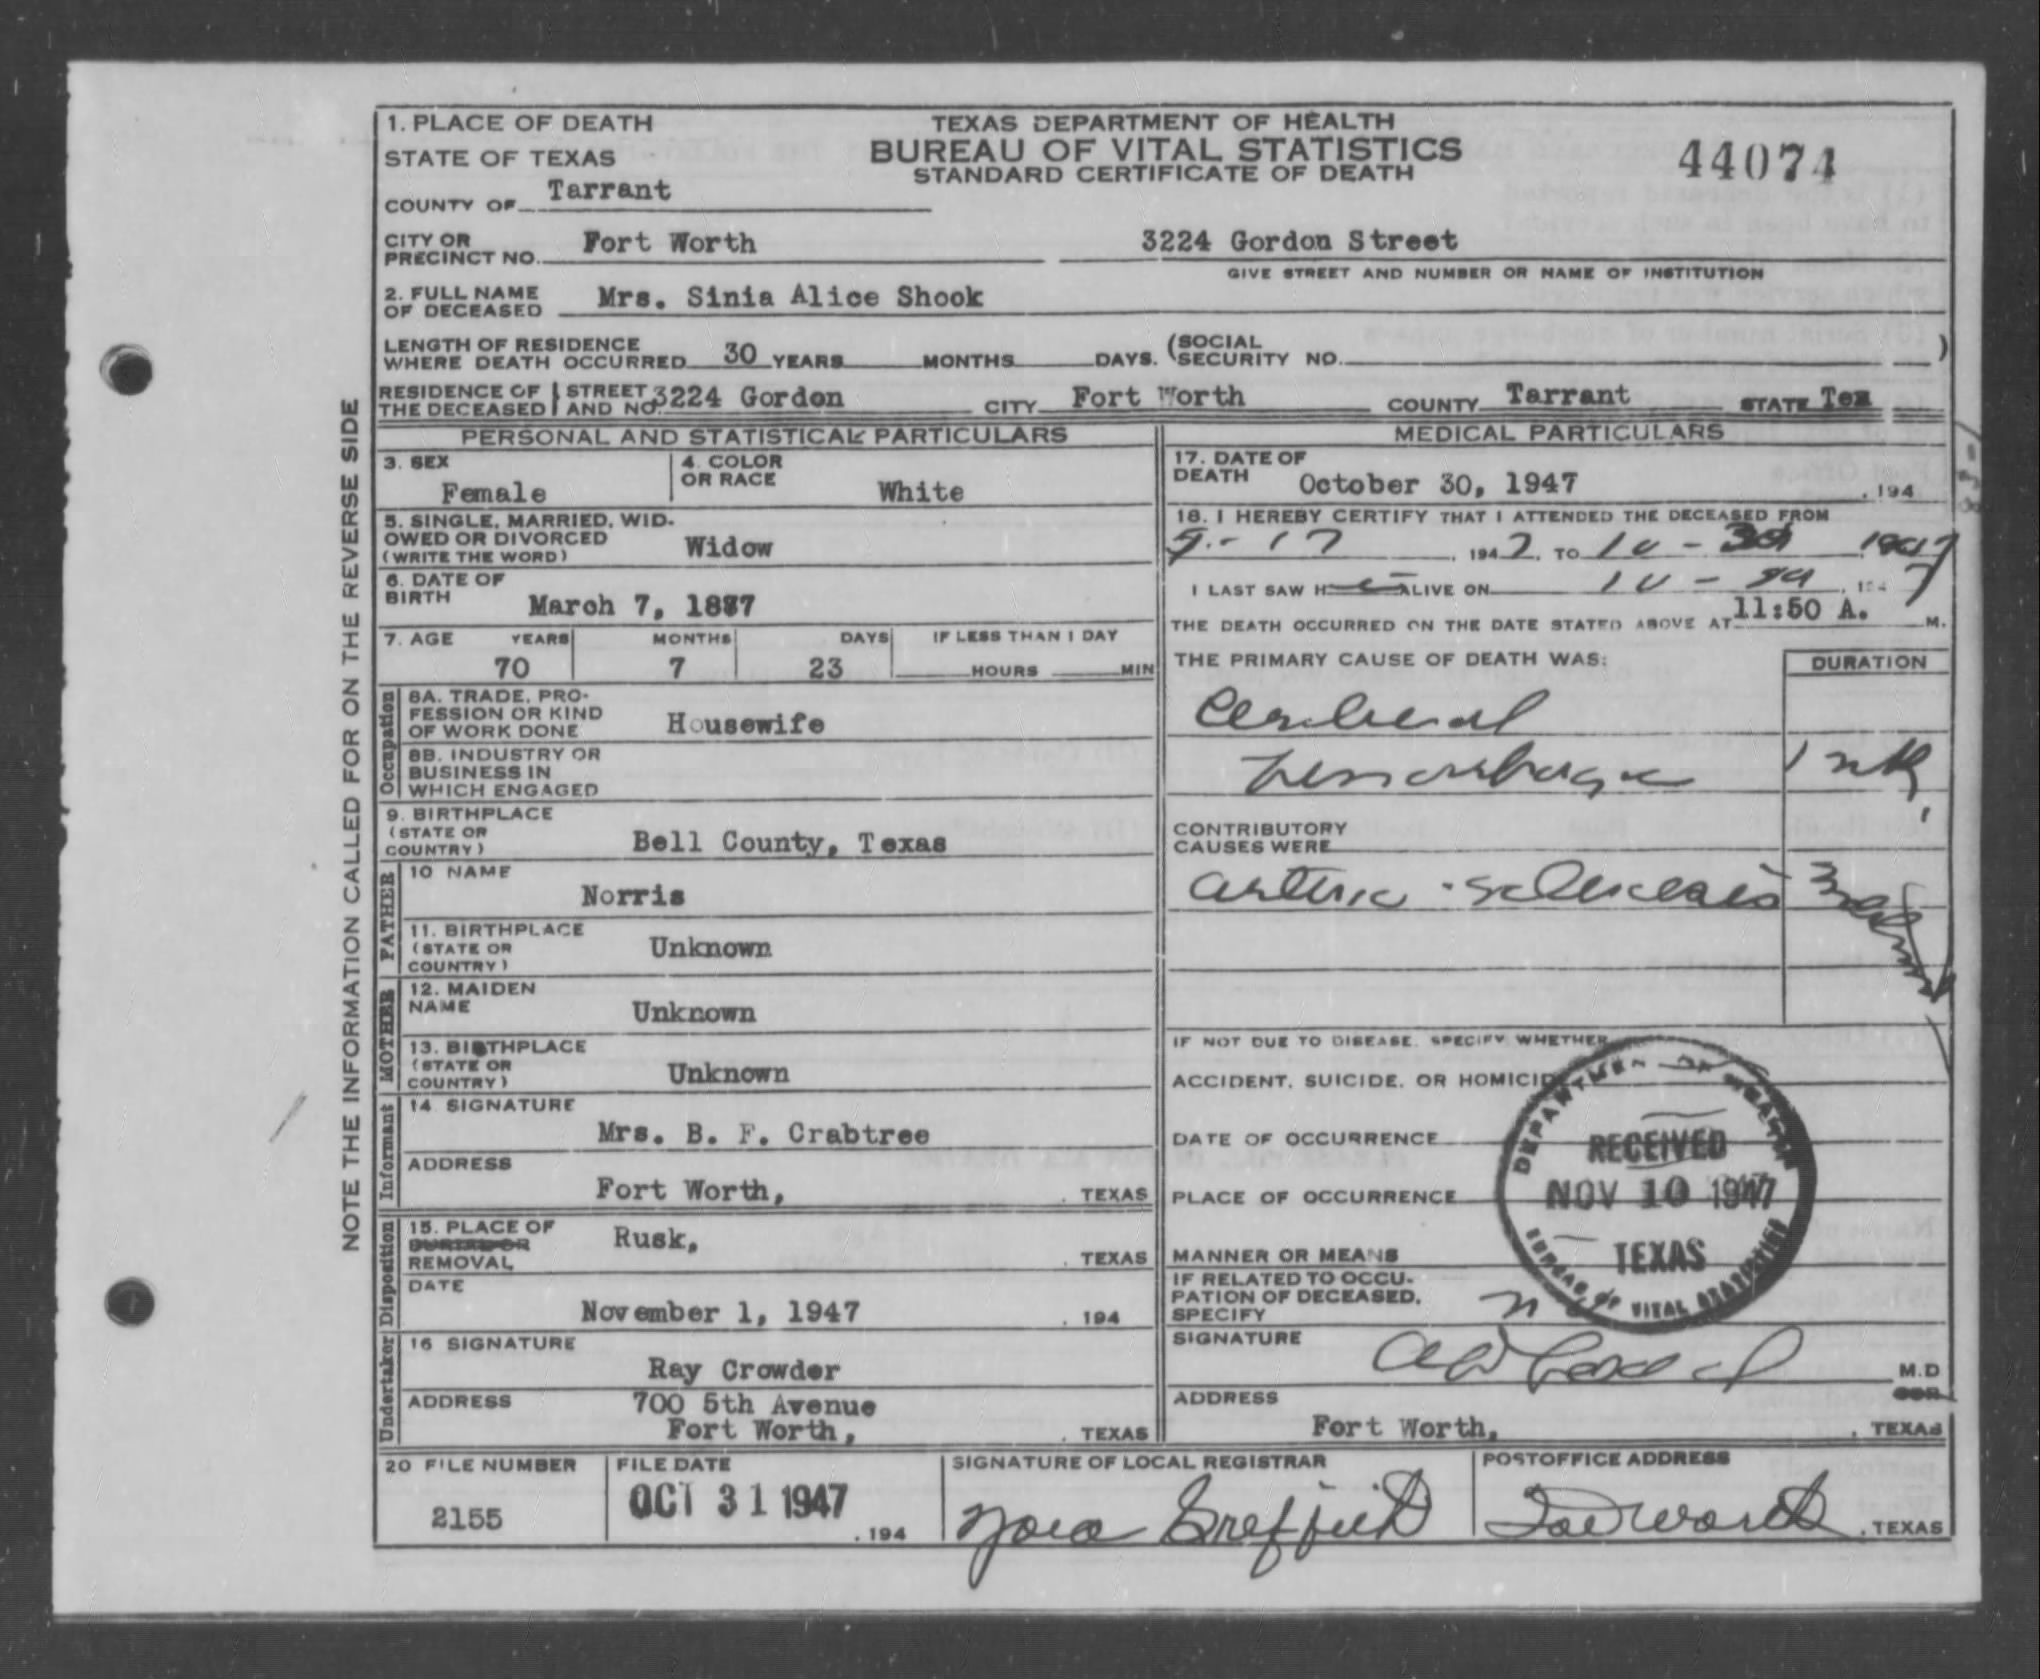 1. PLACE OF DEATH
STATE OF TEXAS
COUNTY OF Tarrant
TEXAS DEPARTMENT OF HEALTH
BUREAU OF VITAL STATISTICS
STANDARD CERTIFICATE OF DEATH
44074
CITY OR PRECINCT NO. Fort Worth
3224 Gordon Street
GIVE STREET AND NUMBER OR NAME OF INSTITUTION
2. FULL NAME OF DECEASED Mrs. Sinia Alice Shook
LENGTH OF RESIDENCE WHERE DEATH OCCURRED 30 YEARS MONTHS DAYS. (SOCIAL SECURITY NO. )
RESIDENCE OF THE DECEASED STREET AND NO. 3224 Gordon CITY Fort Worth COUNTY Tarrant STATE Tex
PERSONAL AND STATISTICAL PARTICULARS
3. SEX Female
4. COLOR OR RACE White
5. SINGLE, MARRIED, WIDOWED OR DIVORCED (WRITE THE WORD) Widow
6. DATE OF BIRTH March 7, 1877
7. AGE YEARS MONTHS DAYS IF LESS THAN 1 DAY
70 7 23 HOURS MIN
Occupation
8A. TRADE, PROFESSION OR KIND OF WORK DONE Housewife
8B. INDUSTRY OR BUSINESS IN WHICH ENGAGED
9. BIRTHPLACE (STATE OR COUNTRY) Bell County, Texas
FATHER
10 NAME Norris
11. BIRTHPLACE (STATE OR COUNTRY) Unknown
MOTHER
12. MAIDEN NAME Unknown
13. BIRTHPLACE (STATE OR COUNTRY) Unknown
Informant
14. SIGNATURE Mrs. B. F. Crabtree
ADDRESS Fort Worth, , TEXAS
Disposition
15. PLACE OF BURIAL OR REMOVAL Rusk, , TEXAS
DATE November 1, 1947 , 194
Undertaker
16 SIGNATURE Ray Crowder
ADDRESS 700 5th Avenue
Fort Worth, , TEXAS
MEDICAL PARTICULARS
17. DATE OF DEATH October 30, 1947 , 194
18. I HEREBY CERTIFY THAT I ATTENDED THE DECEASED FROM
9-17 1947, TO 10-30 1947
I LAST SAW H ALIVE ON 10- 1947
THE DEATH OCCURRED ON THE DATE STATED ABOVE AT 11:50 A. M.
THE PRIMARY CAUSE OF DEATH WAS: DURATION
Cerebral
hemorrhage 1 wk,
CONTRIBUTORY CAUSES WERE
arterio-sclerosis
IF NOT DUE TO DISEASE, SPECIFY WHETHER
ACCIDENT, SUICIDE, OR HOMICIDE
DATE OF OCCURRENCE
PLACE OF OCCURRENCE
MANNER OR MEANS
IF RELATED TO OCCUPATION OF DECEASED, SPECIFY no
DEPARTMENT OF HEALTH
RECEIVED
NOV 10 1947
TEXAS
BUREAU OF VITAL STATISTICS
SIGNATURE M.D
ADDRESS Fort Worth, , TEXAS
20 FILE NUMBER 2155
FILE DATE OCT 31 1947 , 194
SIGNATURE OF LOCAL REGISTRAR
POSTOFFICE ADDRESS Fort Worth , TEXAS
NOTE THE INFORMATION CALLED FOR ON THE REVERSE SIDE